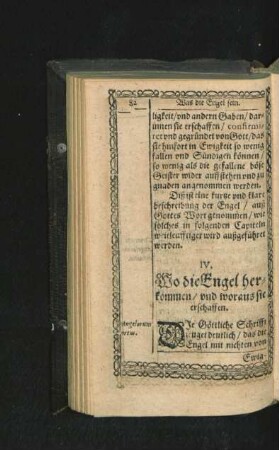 82 Was die Engel sein.
ligkeit/ vnd andern Gaben/ dar-
innen sie erschaffen/ confirmi-
ret vnd gegründet von Gott/ das
sie hinfort in Ewigkeit so wenig
fallen vnd Sündigen können/
so wenig als die gefallene böse
Geister wider auffstehen vnd zu
gnaden angenommen werden.
Diß ist eine kurtze vnd klare
beschreibung der Engel/ aus
Gottes Wort genommen/ wie
solches in folgenden Capiteln
weitleufftiger wird außgeführet
werden.
IV.
Wo die Engel her-
kommen/ vnd woraus sie
erschaffen.
Angelorum
DIe Göttliche Schrifft
zeuget deutlich/ das die
Engel mit nichten von
Ewig-